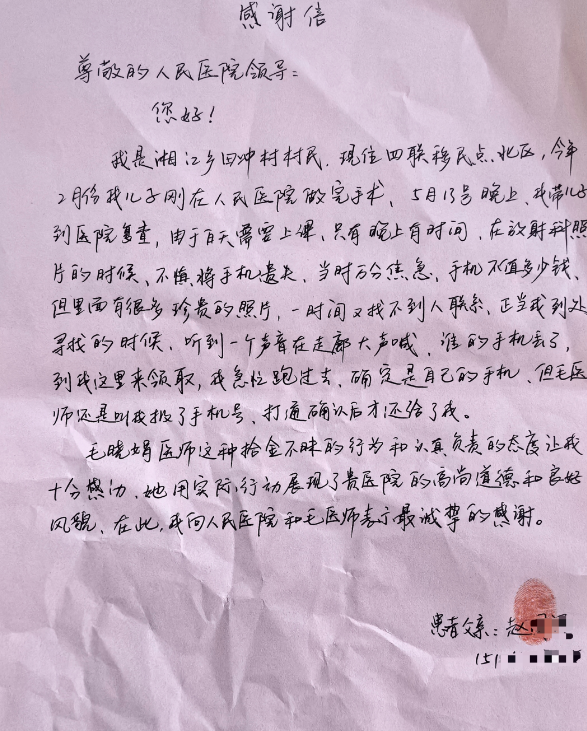 感谢信
尊敬的人民医院领导：
您好！
我是湘江乡田冲村村民，现住四联移民点北区，今年
2月份我儿子刚在人民医院做完手术，5月13号晚上，我带儿子
到医院复查，由于白天需要上课，只有晚上有时间，在放射科照
片的时候，不慎将手机遗失，当时万分焦急，手机不值多少钱，
但里面有很多珍贵的照片，一时间又找不到人联系，正当我到处
寻找的时候，听到一个声音在走廊大声喊，谁的手机丢了，
到我这里来领取，我急忙跑过去，确定是自己的手机，但毛医
师还是叫我报了手机号，打通确认后才还给了我。
毛晓娟医师这种拾金不昧的行为和认真负责的态度让我
十分感动，她用实际行动展现了贵医院的高尚道德和良好
风貌，在此，我向人民医院和毛医师表示最诚挚的感谢。
患者父亲：赵
151